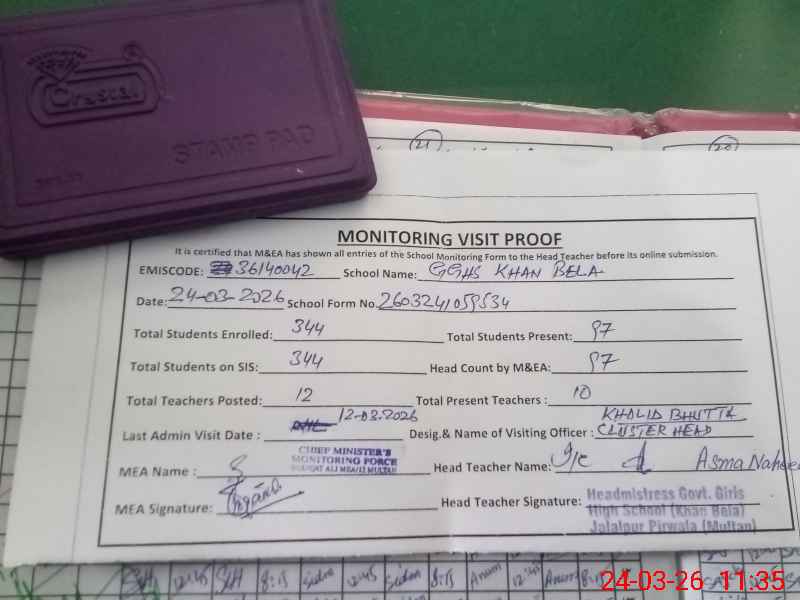 Crystal
STAMP PAD
(21)
(20)
MONITORING VISIT PROOF
It is certified that M&EA has shown all entries of the School Monitoring Form to the Head Teacher before its online submission.
EMISCODE: 36140042 School Name: GGHS KHAN BELA
Date: 24-03-2026 School Form No. 2603241059534
Total Students Enrolled: 344 Total Students Present: 97
Total Students on SIS: 344 Head Count by M&EA: 97
Total Teachers Posted: 12 Total Present Teachers : 10
Last Admin Visit Date : 12-03.2026 Desig.& Name of Visiting Officer : KHALID BHUTTA CLUSTER HEAD
CHIEF MINISTER'S
MONITORING FORCE
MEA Name : Head Teacher Name: I/c Asma
MEA Signature: Head Teacher Signature: Headmistress Govt. Girls
High School (Khan Bela)
Jalalpur Pirwala (Multan)
12:45 8:15 12:45 8:15
24-03-26 11:35